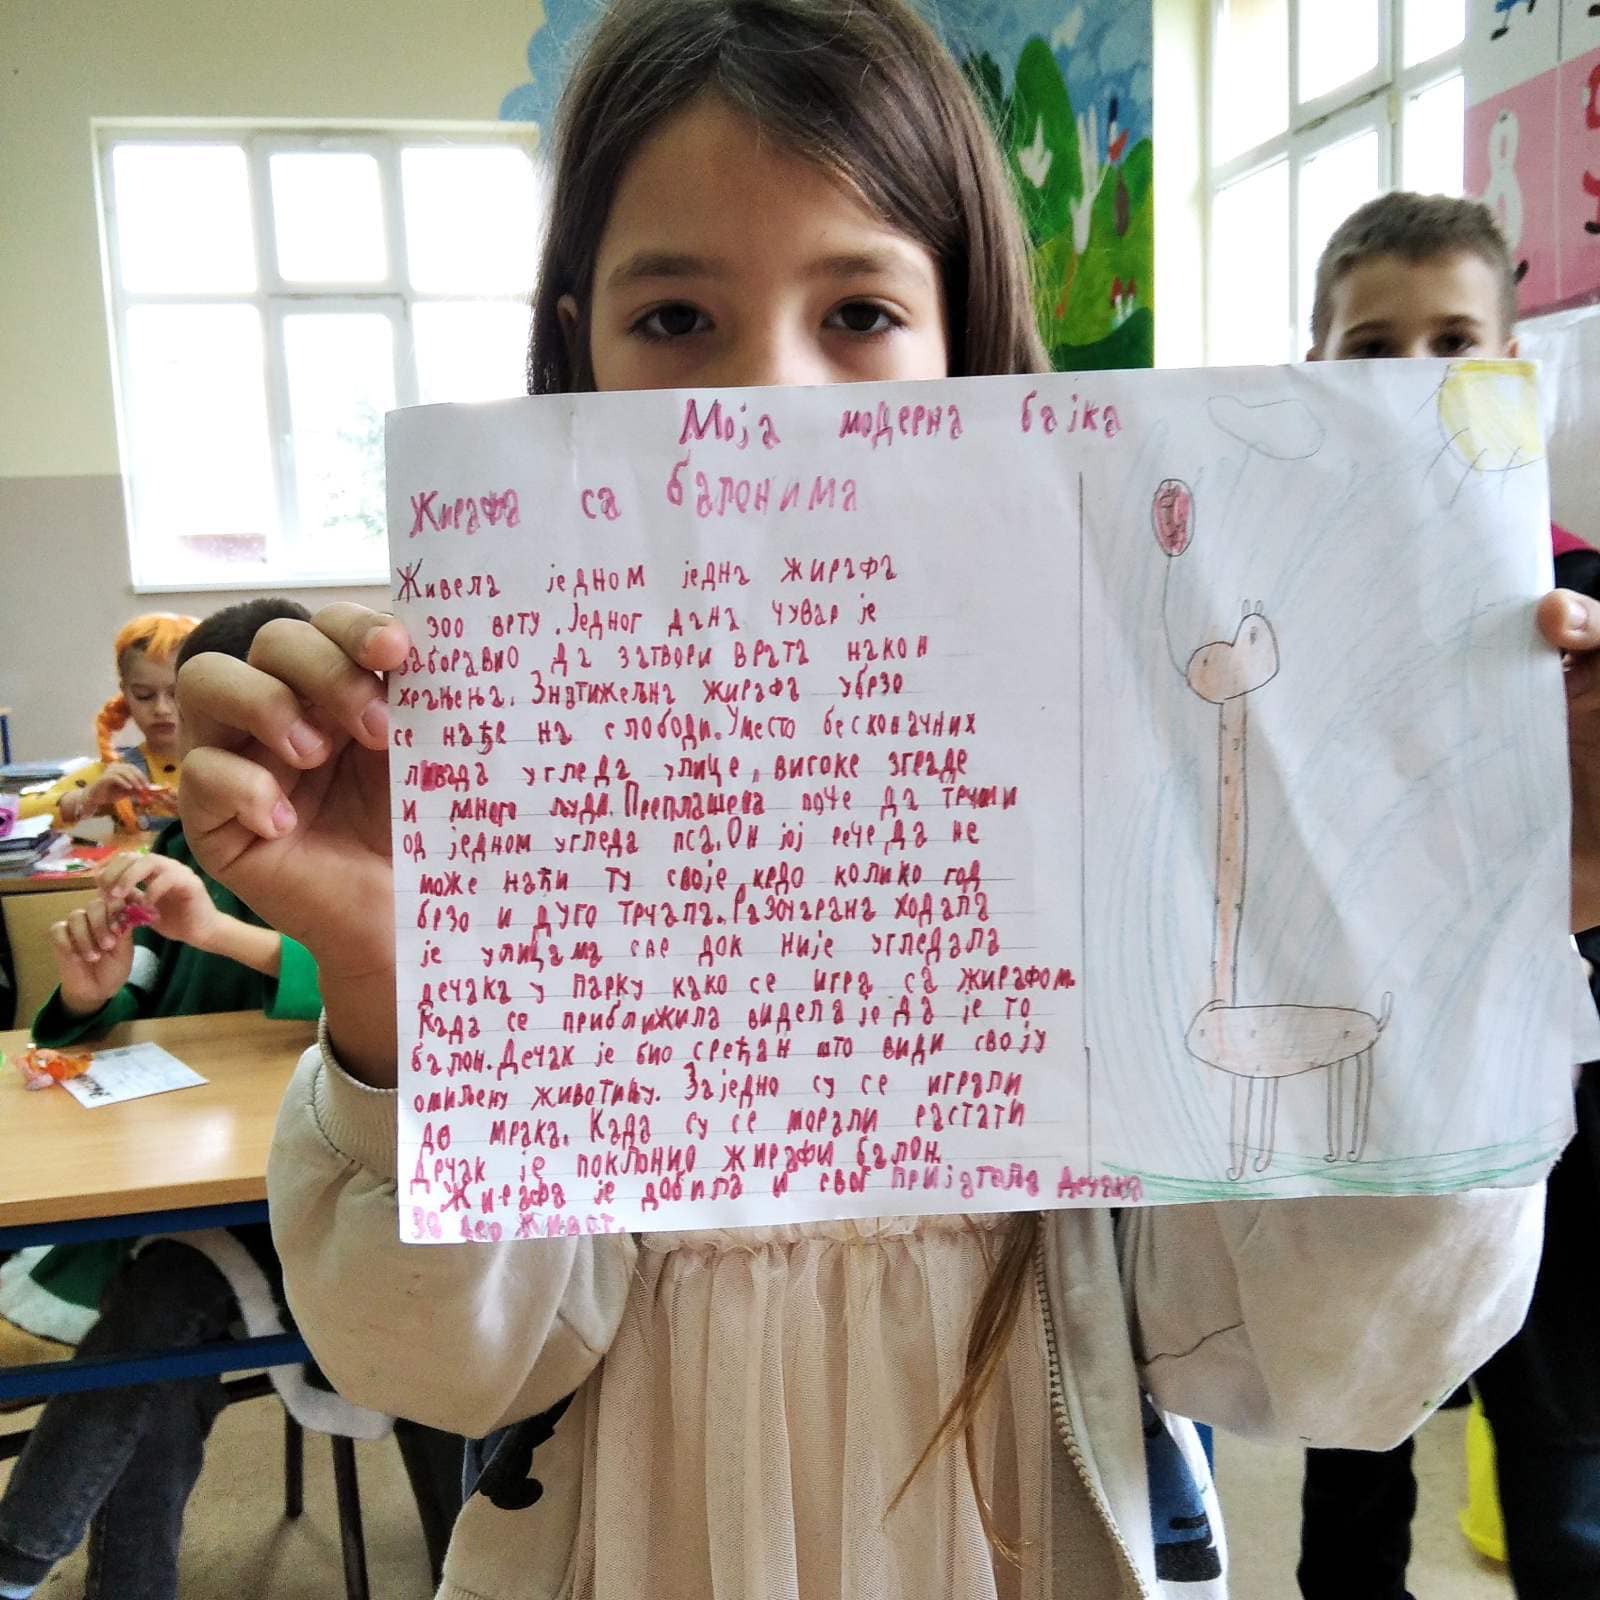 Моја модерна бајка
Жирафа са балонима
Живела једном једна жирафа
зоо врту. Једног дана чувар је
заборавио да затвори врата након
храњења. Знатижељна жирафа убрзо
се нађе на слободи. Уместо бесконачних
ливада угледа улице, високе зграде
и много људи. Преплашена поче да трчи
од једном угледа пса. Он јој рече, да не
може наћи ту своје крдо колико год
брзо и дуго трчала. Разочарана ходала
је улицама све док није угледала
дечака у парку како се игра са жирафом.
Када се приближила видела је да је то
балон. Дечак је био срећан што види своју
омиљену животињу. Заједно су се играли
до мрака. Када су се морали растати
дечак је поклонио жирафи балон.
Жирафа је добила и свог пријатела дечака
за цео живот.
8